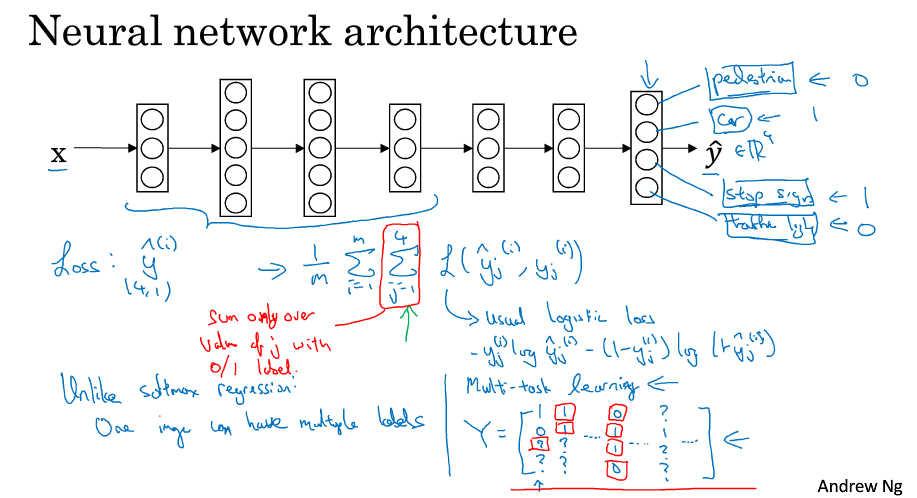 Neural network architecture
pedestrian ← 0
car ← 1
x
ŷ ∈ ℝ⁴
stop sign ← 1
traffic light ← 0
Loss: ŷ^(i) → 1/m Σ_{i=1}^{m} Σ_{j=1}^{4} L(ŷ_j^(i), y_j^(i))
(4,1)
sum only over
value of j with
0/1 label.
↳ usual logistic loss
- y_j^(i) log ŷ_j^(i) - (1-y_j^(i)) log (1-ŷ_j^(i))
Unlike softmax regression:
One image can have multiple labels
Multi-task learning ←
Y = [
1 1 0 ?
0 1 .... 1 1
? ? 1 .... ? ....
? ? 0 ?
] ←
Andrew Ng